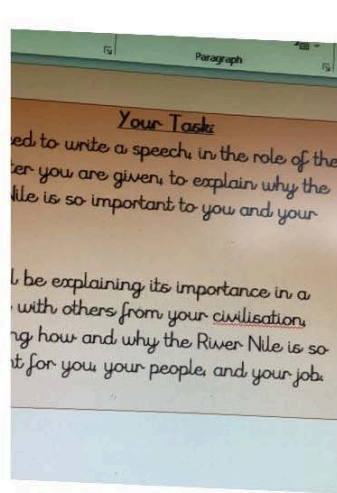 Paragraph
Your Task:
ed to write a speech, in the role of the
ter you are given, to explain why the
Nile is so important to you and your
l be explaining its importance in a
with others from your civilisation,
ng how and why the River Nile is so
nt for you, your people, and your job.